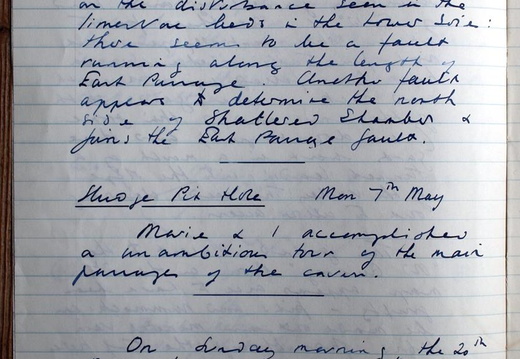 on the disturbance seen in the
limestone beds in the Tower Soie:
there seems to be a fault
running along the length of
East Passage. Another fault
appears to determine the north
side of Shattered Chamber &
joins the East Passage fault.
Sludge Pit Hole Mon 7th May
Marie & I accomplished
a unambitious tour of the main
passages of the cavern.
On Sunday morning, the 20th